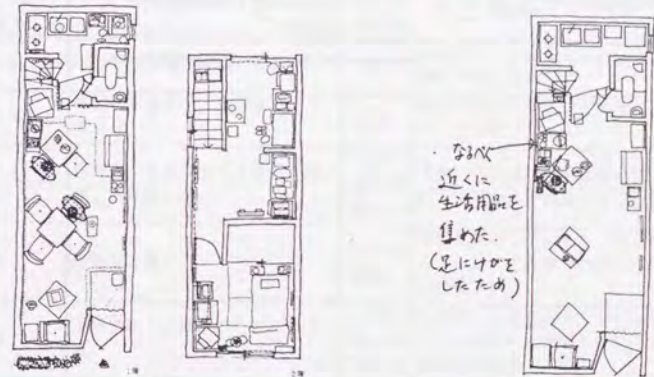 1階
2階
・なるべく
近くに
生活用品を
集めた.
(足にけがを
したため)